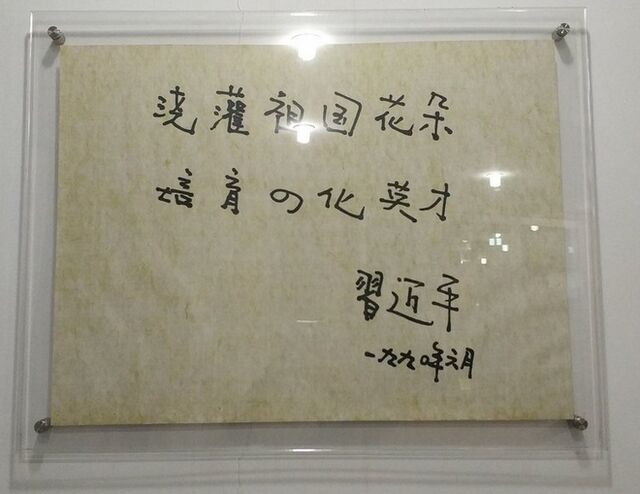 浇灌祖国花朵
培育四化英才
習近平
一九九〇年六月